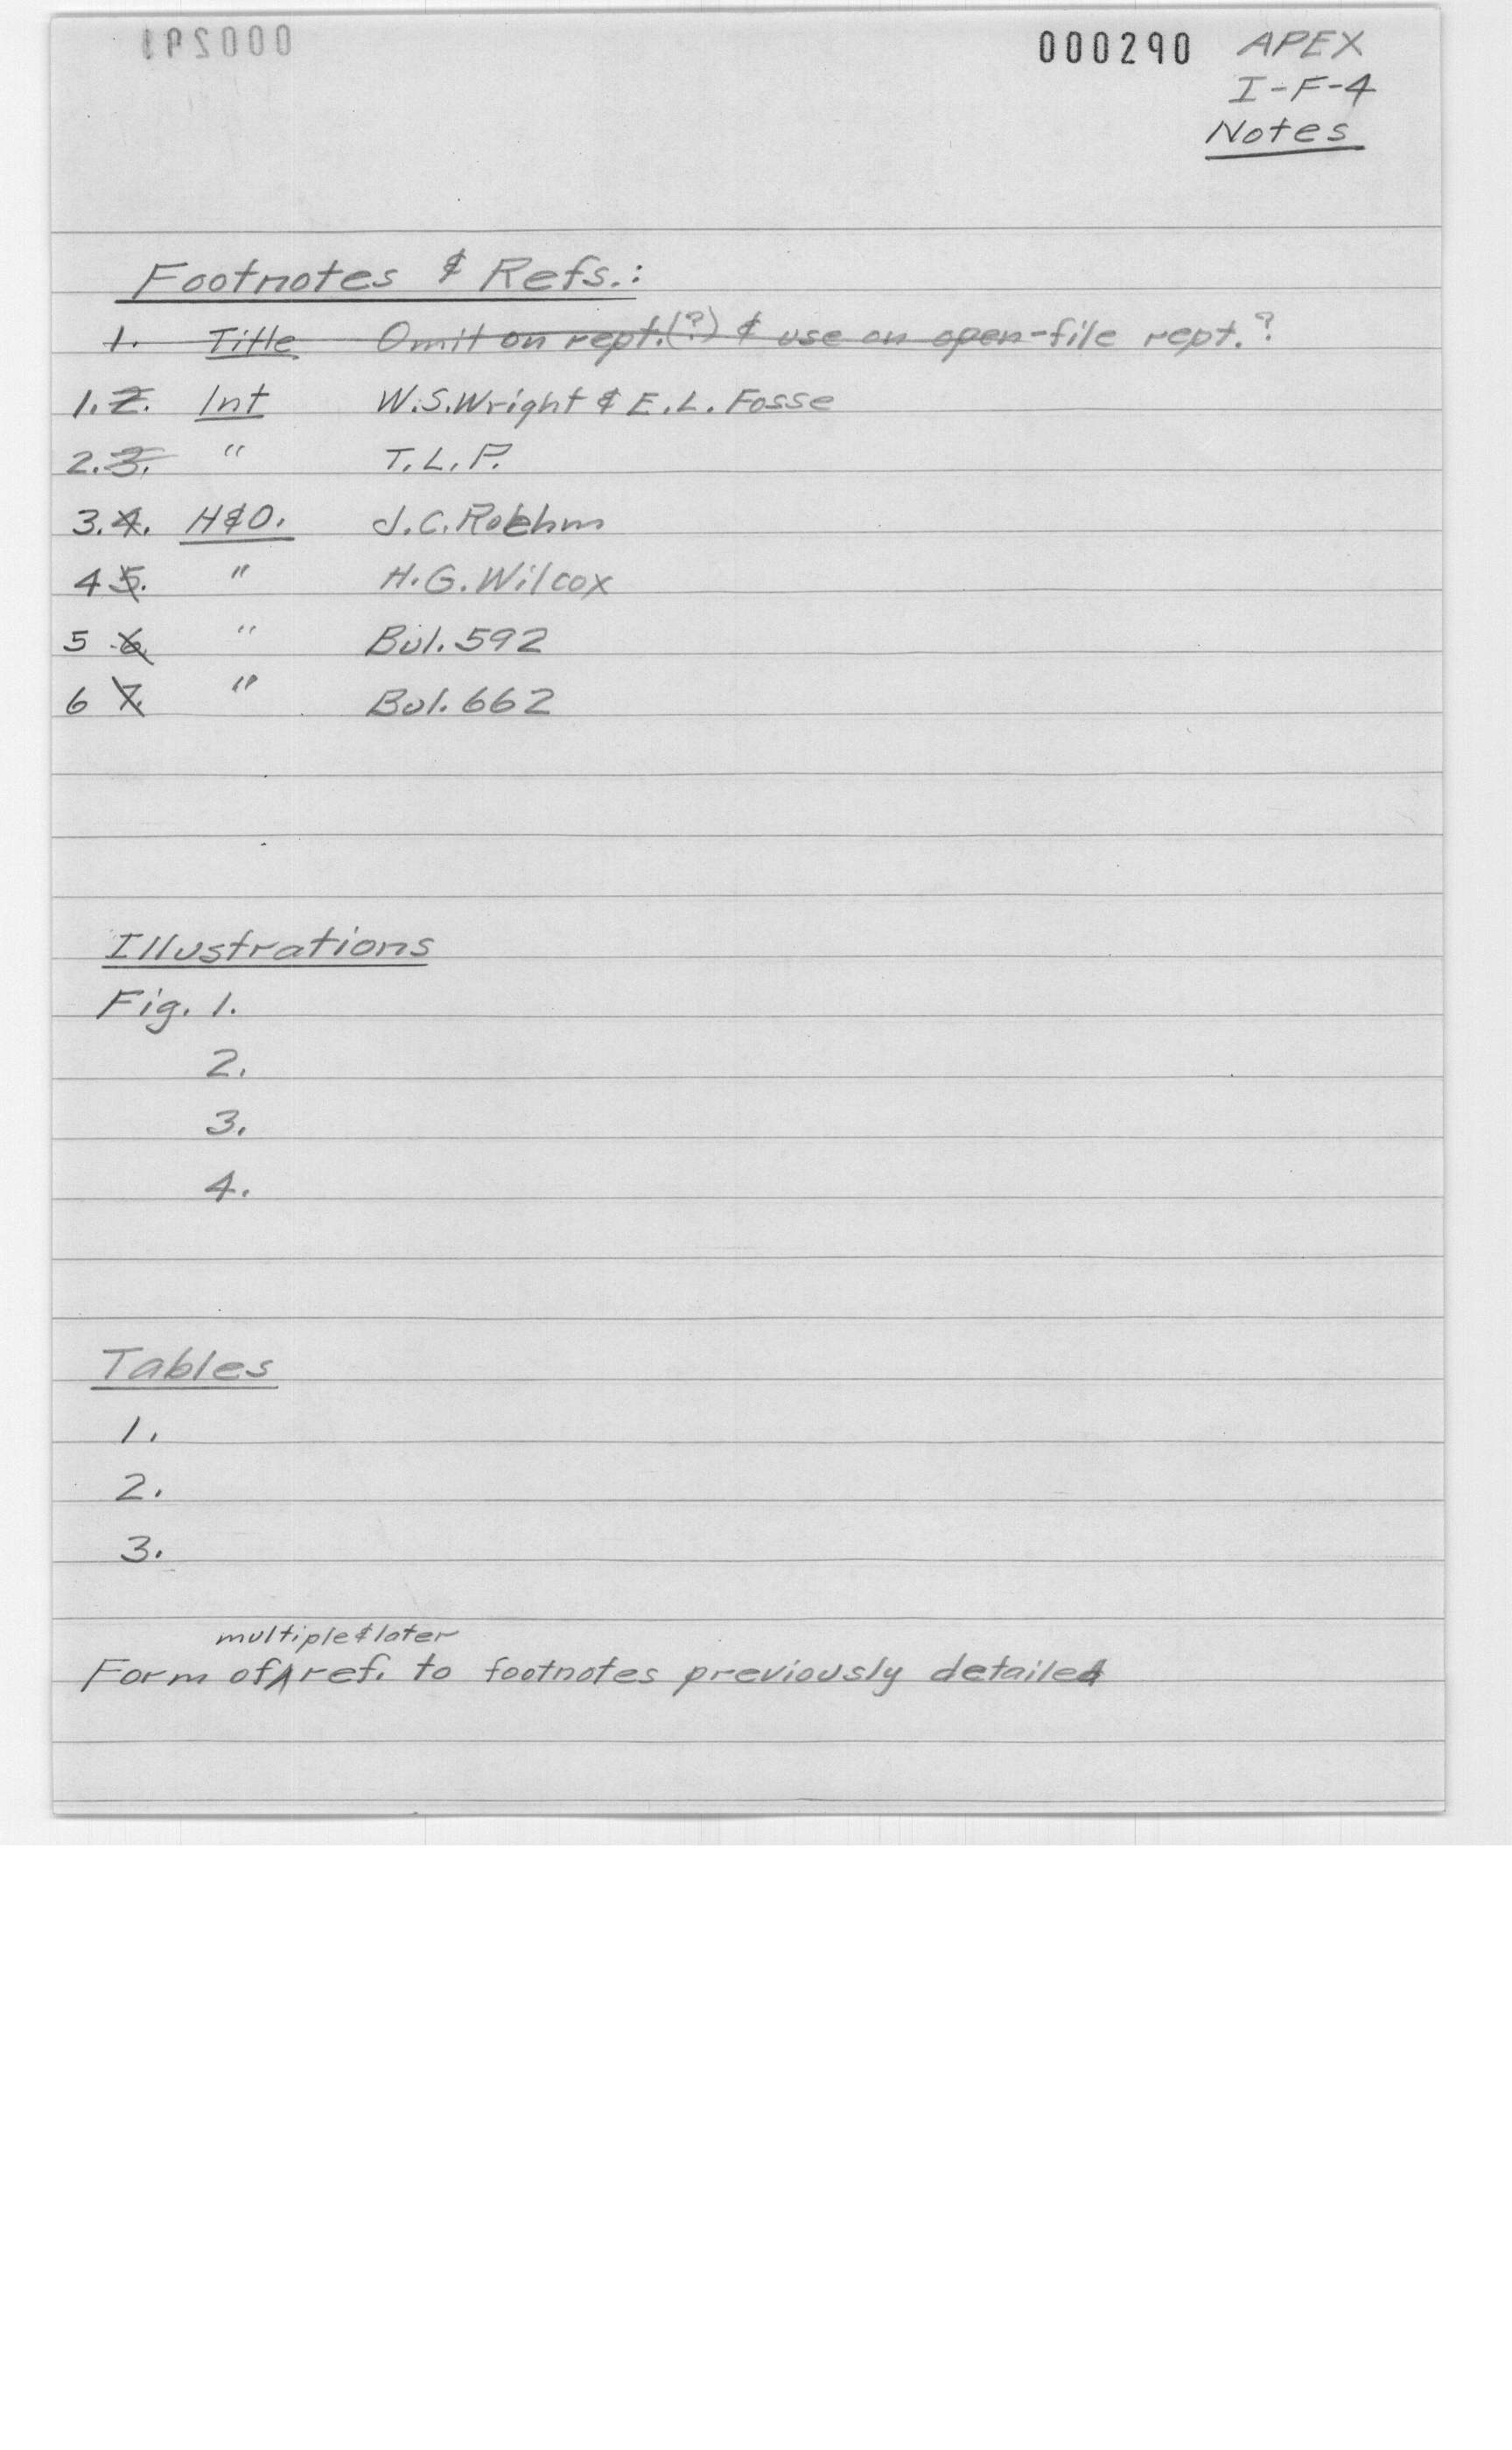 000290 APEX
I-F-4
Notes
Footnotes & Refs.:
1. Title Omit on rept.(?) & use on open-file rept.?
1. 2. Int W.S.Wright & E.L. Fosse
2. 3. " T.L.P.
3. 4. H&O. J.C. Roehm
4 5. " H.G. Wilcox
5 6. " Bul. 592
6 7. " Bul. 662
Illustrations
Fig. 1.
2.
3.
4.
Tables
1.
2.
3.
multiple & later
Form of ref. to footnotes previously detailed